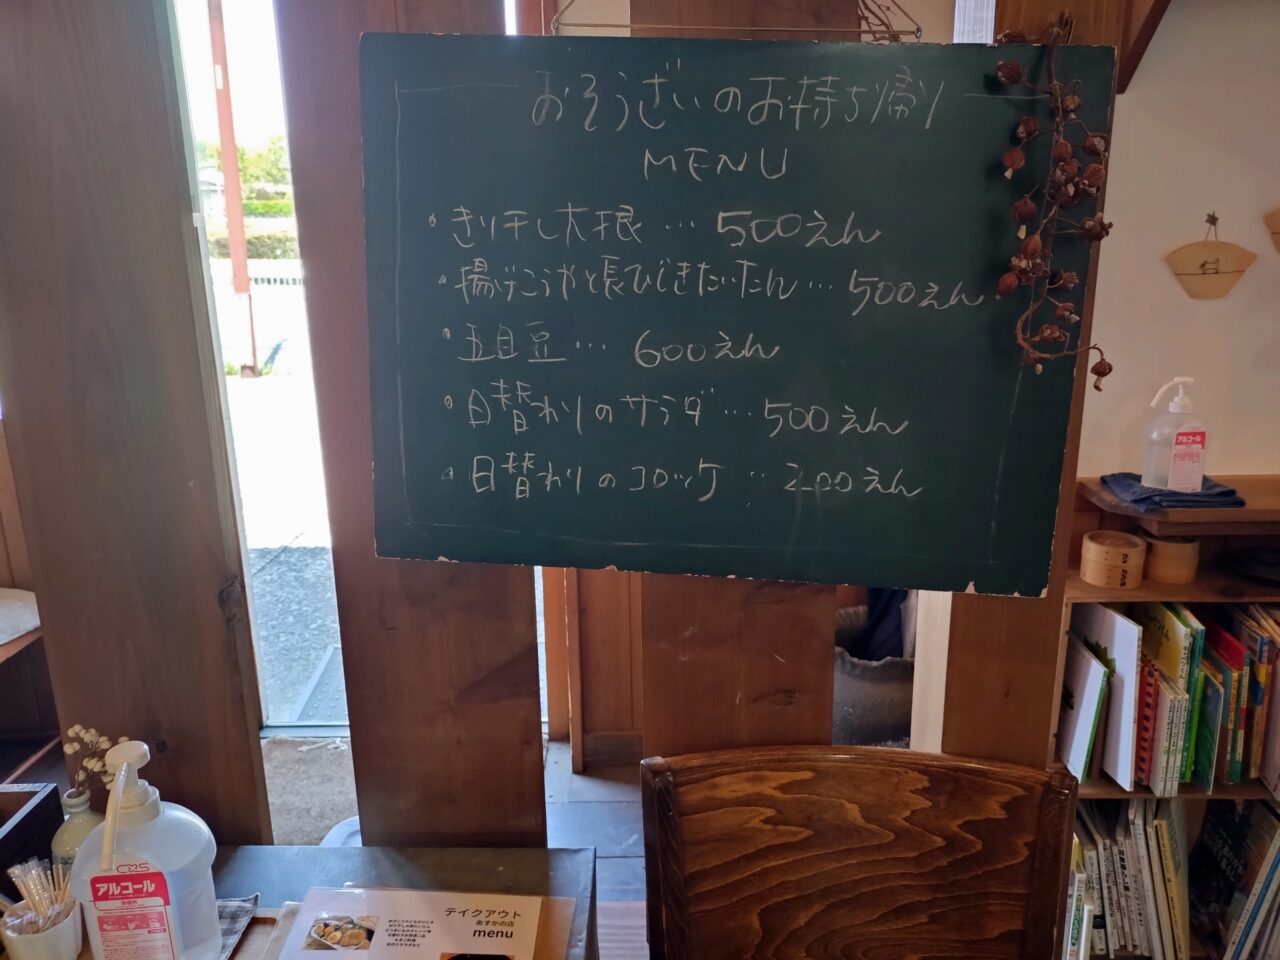 おそうざいのお持ち帰り
MENU
・きり干し大根…500えん
・揚げこうやと長ひじきたいたん…500えん
・五目豆…600えん
・日替わりのサラダ…500えん
・日替わりのコロッケ…200えん
アルコール
CxS
アルコール
テイクアウト
あすかの店
menu